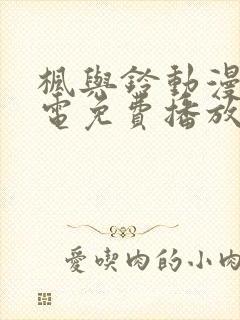 楓與鈴動漫
電免費播放
愛喫肉的小肉